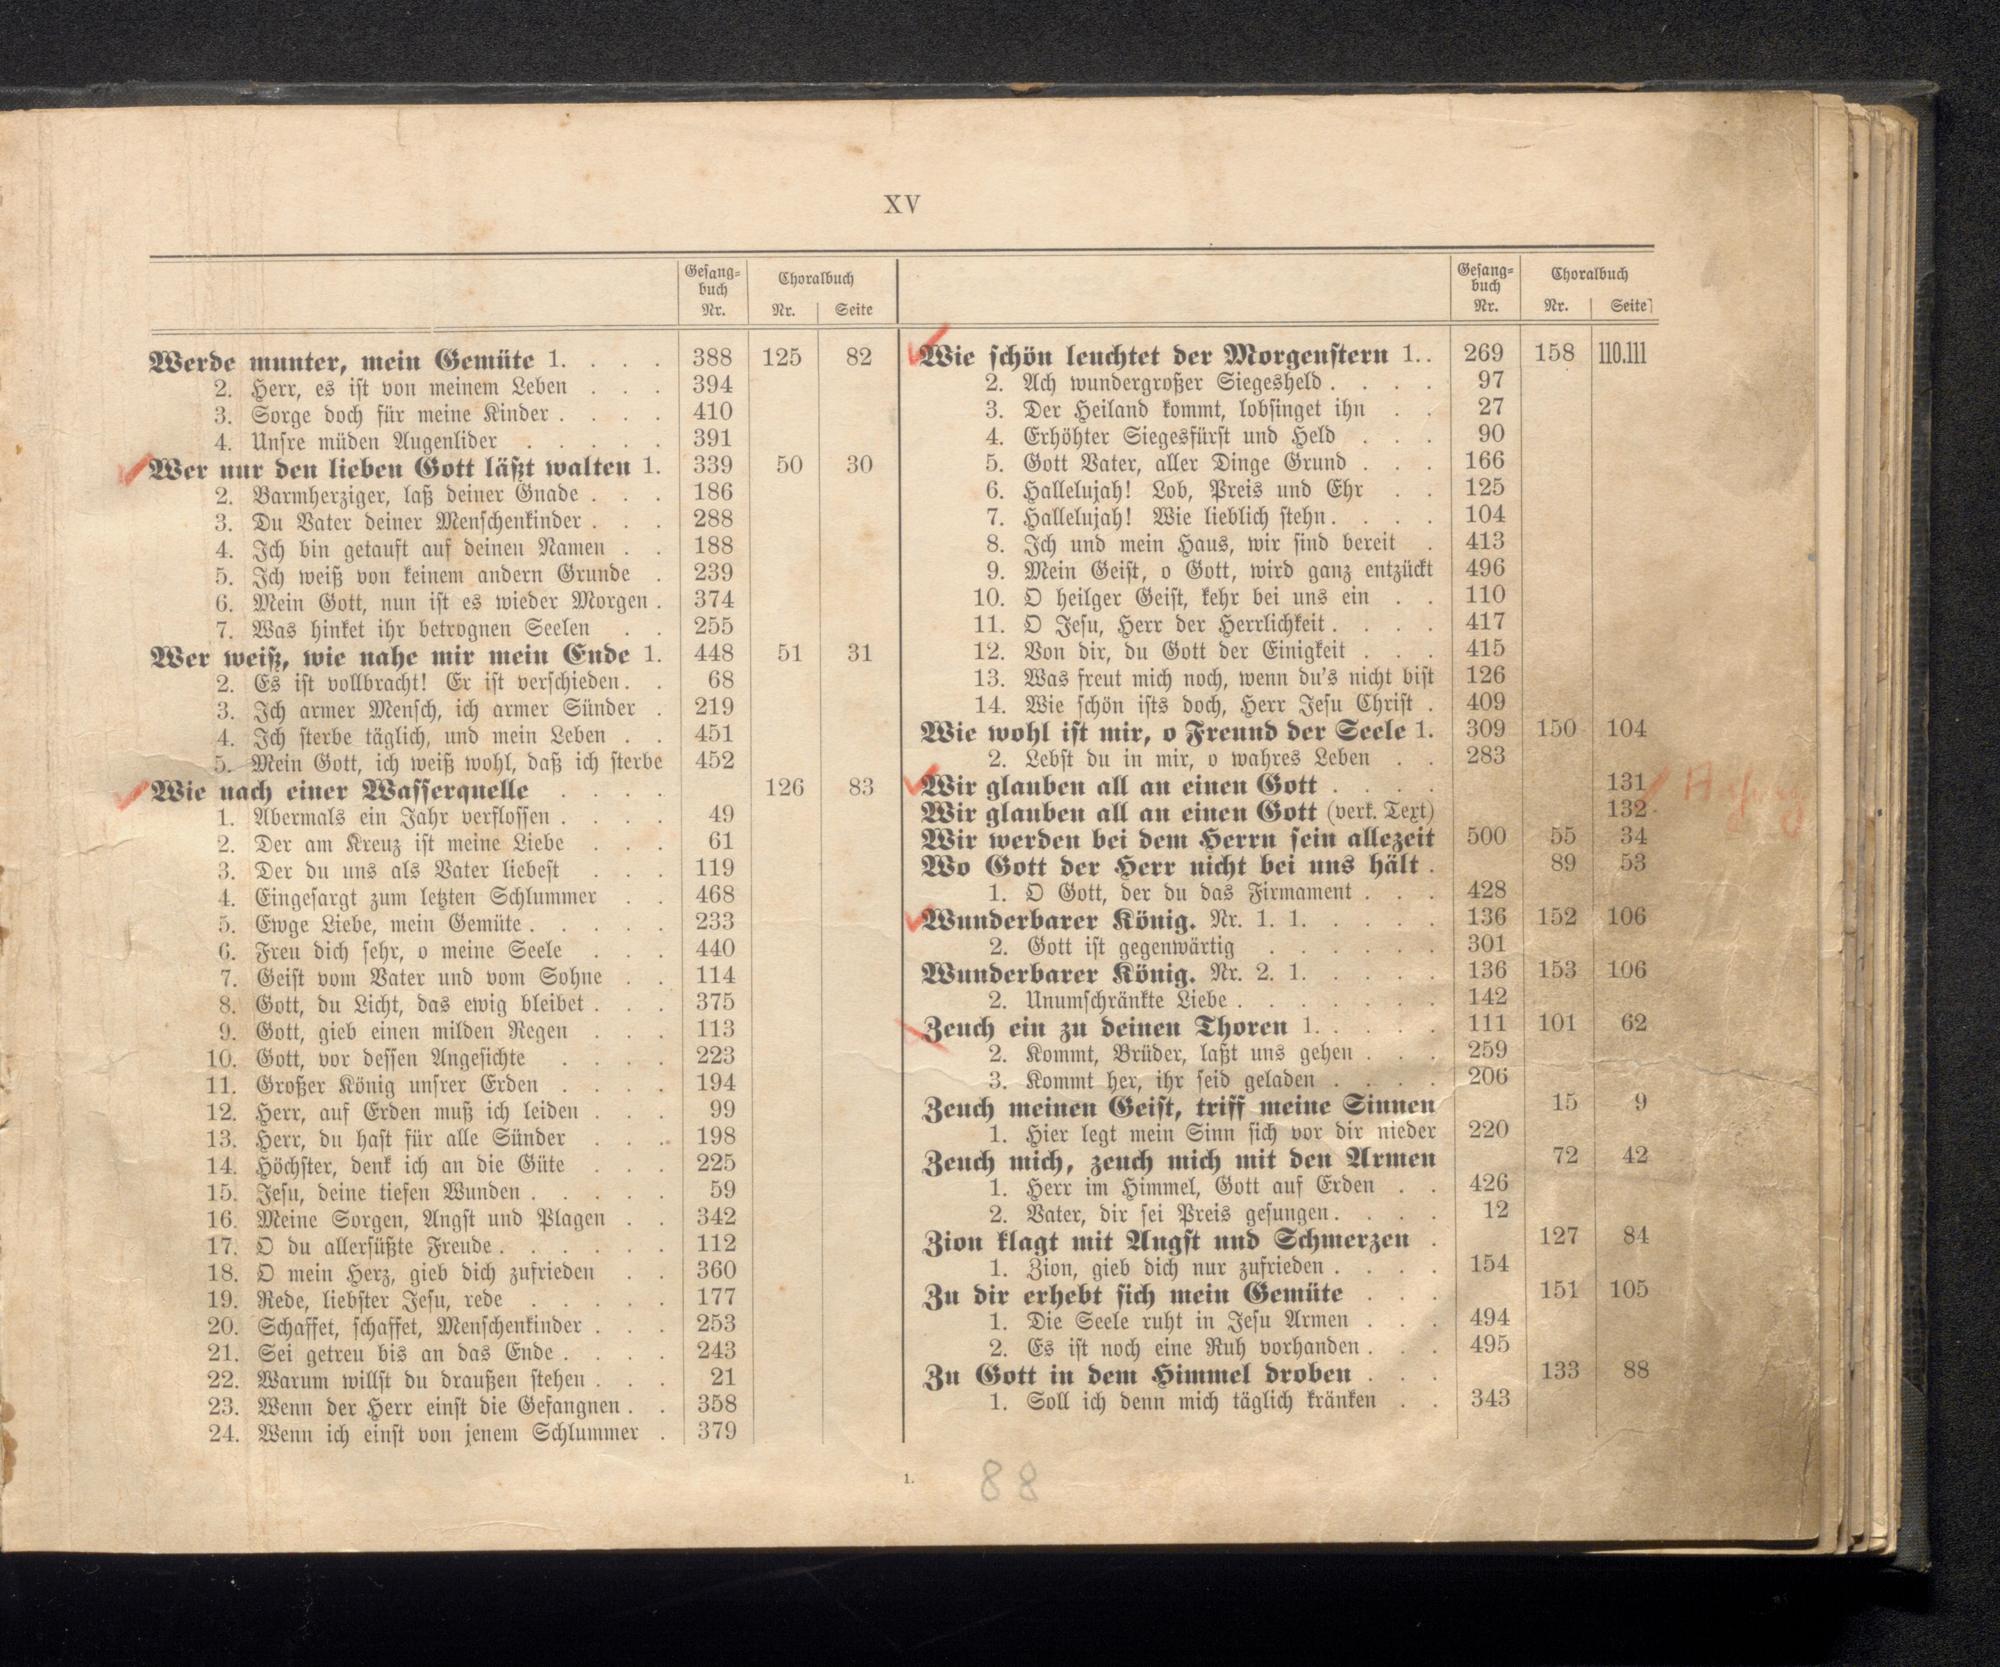 XV
Gesang-
buch
Nr.
Choralbuch
Nr. Seite
Werde munter, mein Gemüte 1. . . . 388 125 82
2. Herr, es ist von meinem Leben . . . 394
3. Sorge doch für meine Kinder . . . . 410
4. Unsre müden Augenlider . . . . . 391
Wer nur den lieben Gott läßt walten 1. 339 50 30
2. Barmherziger, laß deiner Gnade . . . 186
3. Du Vater deiner Menschenkinder . . . 288
4. Ich bin getauft auf deinen Namen . . 188
5. Ich weiß von keinem andern Grunde . 239
6. Mein Gott, nun ist es wieder Morgen . 374
7. Was hinket ihr betrognen Seelen . . 255
Wer weiß, wie nahe mir mein Ende 1. 448 51 31
2. Es ist vollbracht! Er ist verschieden. . 68
3. Ich armer Mensch, ich armer Sünder . 219
4. Ich sterbe täglich, und mein Leben . . 451
5. Mein Gott, ich weiß wohl, daß ich sterbe 452
Wie nach einer Wasserquelle . . . . 126 83
1. Abermals ein Jahr verflossen . . . . 49
2. Der am Kreuz ist meine Liebe . . . 61
3. Der du uns als Vater liebest . . . 119
4. Eingesargt zum letzten Schlummer . . 468
5. Ewge Liebe, mein Gemüte . . . . . 233
6. Freu dich sehr, o meine Seele . . . 440
7. Geist vom Vater und vom Sohne . . 114
8. Gott, du Licht, das ewig bleibet . . . 375
9. Gott, gieb einen milden Regen . . . 113
10. Gott, vor dessen Angesichte . . . . 223
11. Großer König unsrer Erden . . . . 194
12. Herr, auf Erden muß ich leiden . . . 99
13. Herr, du hast für alle Sünder . . . 198
14. Höchster, denk ich an die Güte . . . 225
15. Jesu, deine tiefen Wunden . . . . . 59
16. Meine Sorgen, Angst und Plagen . . 342
17. O du allersüßte Freude . . . . . . 112
18. O mein Herz, gieb dich zufrieden . . 360
19. Rede, liebster Jesu, rede . . . . . 177
20. Schaffet, schaffet, Menschenkinder . . . 253
21. Sei getreu bis an das Ende . . . . 243
22. Warum willst du draußen stehen . . . 21
23. Wenn der Herr einst die Gefangnen . . 358
24. Wenn ich einst von jenem Schlummer . 379
Gesang-
buch
Nr.
Choralbuch
Nr. Seite
Wie schön leuchtet der Morgenstern 1. . 269 158 110.111
2. Ach wundergroßer Siegesheld . . . . 97
3. Der Heiland kommt, lobsinget ihn . . 27
4. Erhöhter Siegesfürst und Held . . . 90
5. Gott Vater, aller Dinge Grund . . . 166
6. Hallelujah! Lob, Preis und Ehr . . 125
7. Hallelujah! Wie lieblich stehn . . . . 104
8. Ich und mein Haus, wir sind bereit . 413
9. Mein Geist, o Gott, wird ganz entzückt 496
10. O heilger Geist, kehr bei uns ein . . 110
11. O Jesu, Herr der Herrlichkeit . . . . 417
12. Von dir, du Gott der Einigkeit . . . 415
13. Was freut mich noch, wenn du's nicht bist 126
14. Wie schön ists doch, Herr Jesu Christ . 409
Wie wohl ist mir, o Freund der Seele 1. 309 150 104
2. Lebst du in mir, o wahres Leben . . 283
Wir glauben all an einen Gott . . . . 131
Wir glauben all an einen Gott (verk. Text) 132
Wir werden bei dem Herrn sein allezeit 500 55 34
Wo Gott der Herr nicht bei uns hält . 89 53
1. O Gott, der du das Firmament . . . 428
Wunderbarer König. Nr. 1. 1. . . . . . 136 152 106
2. Gott ist gegenwärtig . . . . . . 301
Wunderbarer König. Nr. 2. 1. . . . . . 136 153 106
2. Unumschränkte Liebe . . . . . . . 142
Zeuch ein zu deinen Thoren 1. . . . . 111 101 62
2. Kommt, Brüder, laßt uns gehen . . . 259
3. Kommt her, ihr seid geladen . . . . 206
Zeuch meinen Geist, triff meine Sinnen 15 9
1. Hier legt mein Sinn sich vor dir nieder 220
Zeuch mich, zeuch mich mit den Armen 72 42
1. Herr im Himmel, Gott auf Erden . . 426
2. Vater, dir sei Preis gesungen . . . . 12
Zion klagt mit Angst und Schmerzen . 127 84
1. Zion, gieb dich nur zufrieden . . . . 154
Zu dir erhebt sich mein Gemüte . . . 151 105
1. Die Seele ruht in Jesu Armen . . . 494
2. Es ist noch eine Ruh vorhanden . . . 495
Zu Gott in dem Himmel droben . . . 133 88
1. Soll ich denn mich täglich kränken . . 343
1.
88